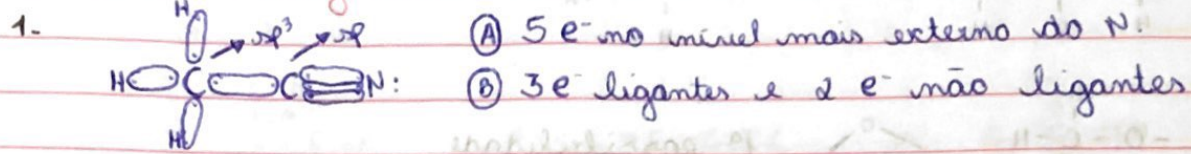 1.
H
sp³ sp Ⓐ 5 e⁻ no nível mais externo do N.
H C C N: Ⓑ 3e⁻ ligantes e 2 e⁻ não ligantes
H